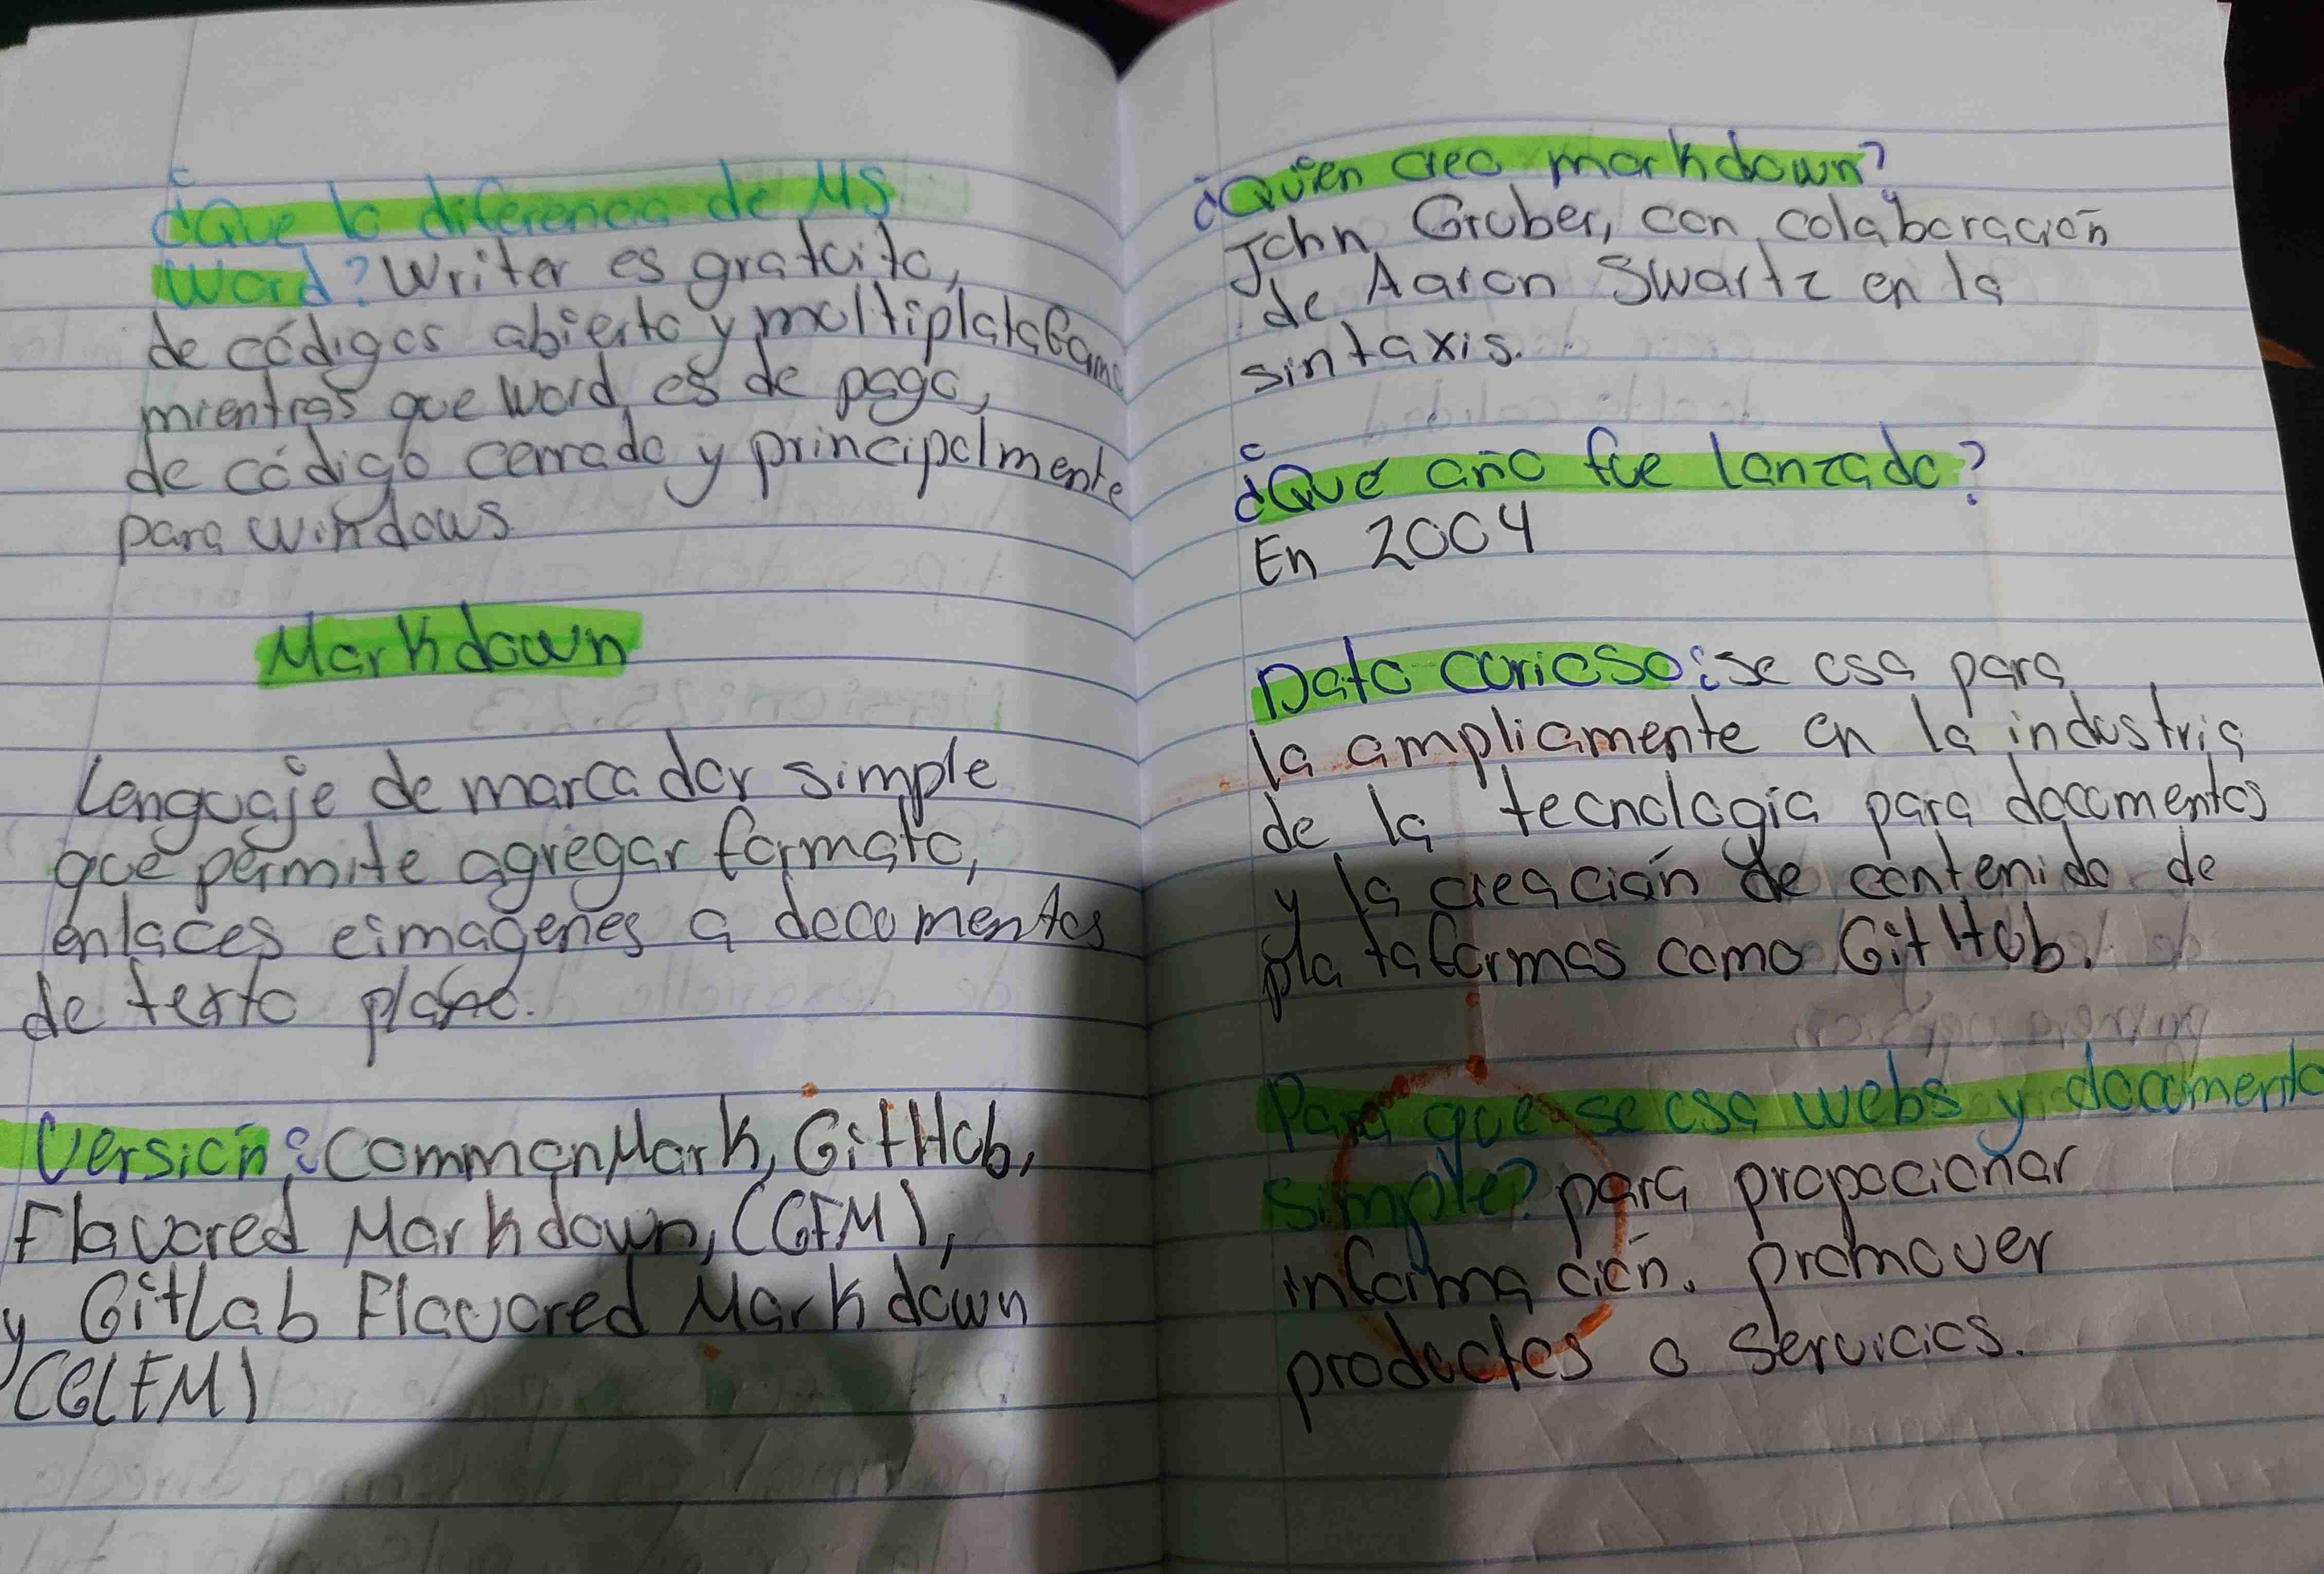 ¿Que lo diferencia de MS
Word? Writer es gratuito,
de códigos abierto y multiplatafam
mientras que word es de pago,
de código cerrado y principalmente
para windows
Markdown
Lenguaje de marcador simple
que permite agregar formato,
enlaces e imagenes a documentos
de texto plano.
Versión: CommonMark, GitHub,
Flavored Markdown, (GFM),
y GitLab Flavored Markdown
(GLFM)
¿Quien creo markdown?
John Gruber, con colaboración
de Aaron Swartz en la
sintaxis.
¿Qué año fue lanzado?
En 2004
Dato curioso: se usa para
la ampliamente en la industria
de la tecnología para documentos
y la creación de contenido de
plataformas como GitHub.
Para que se usa webs y documento
simple? para propocionar
información. promover
productos o servicios.